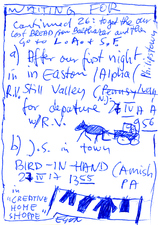 WAITING FOR
Continued 26: to get the our
Lost BROAD from Bethlehem and then
Go to L
a) After our first night
in in Easton (Alpha) Philipsburg
R.V. Still Valley (Pennsylvania
for departure 27 IV A A NJ)
w/R.V. 9 56
b) J.S. in town
BIRD-IN HAND (Amish
27 IV 17 13 55 PA
in "CREATIVE
HOME
SHOPPE"